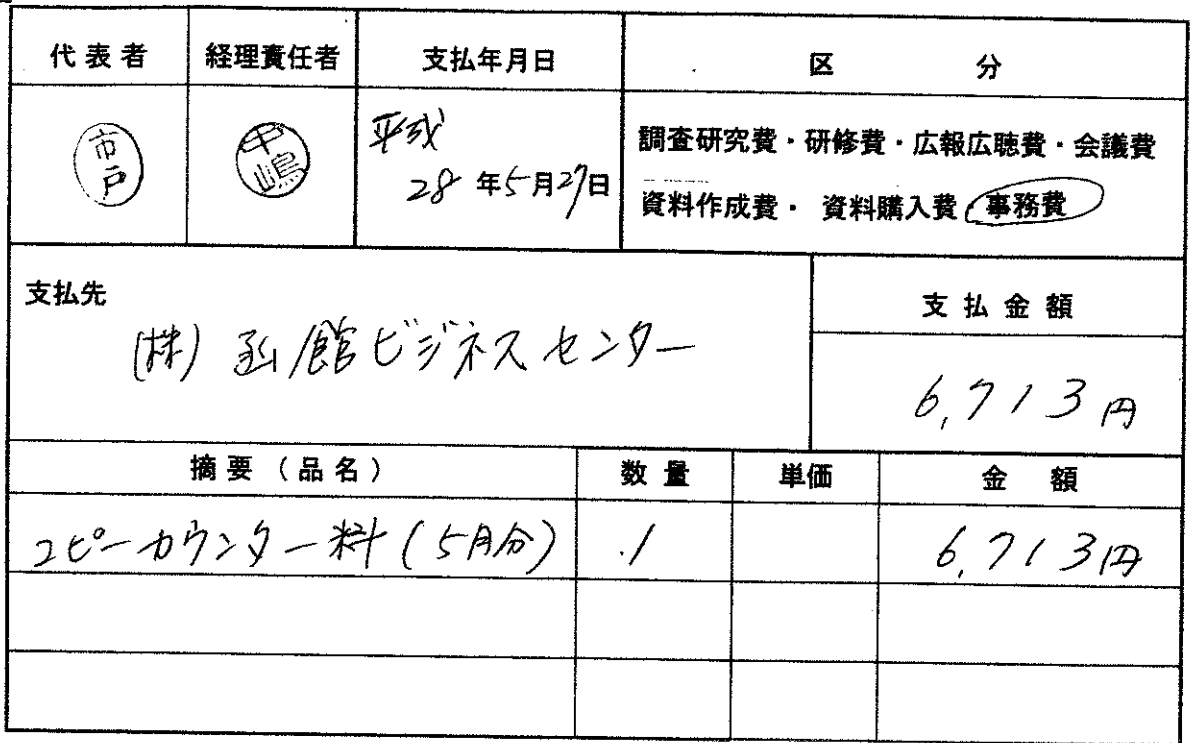 代表者 経理責任者 支払年月日 区 分
市戸 中嶋 平成
28 年5月27日
調査研究費・研修費・広報広聴費・会議費
資料作成費・ 資料購入費・事務費
支払先 支払金額
(株) 函館ビジネスセンター
6,713円
摘要(品名) 数量 単価 金 額
コピーカウンター料(5月分) 1 6,713円